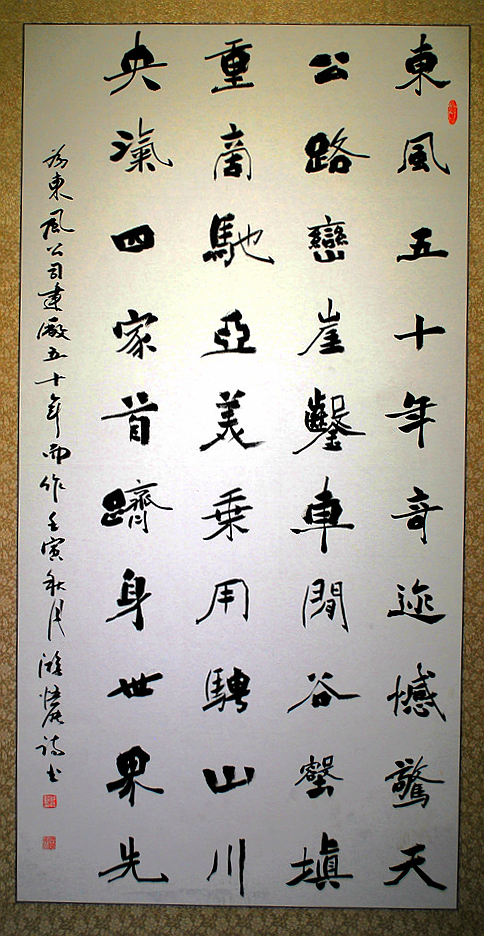 東風五十年奇迹憾驚天
公路巒崖鑿車間谷壑填
重商馳亞美乘用騁山川
央氣四家首躋身世界先
為東風公司建廠五十年而作壬寅秋月 詩書